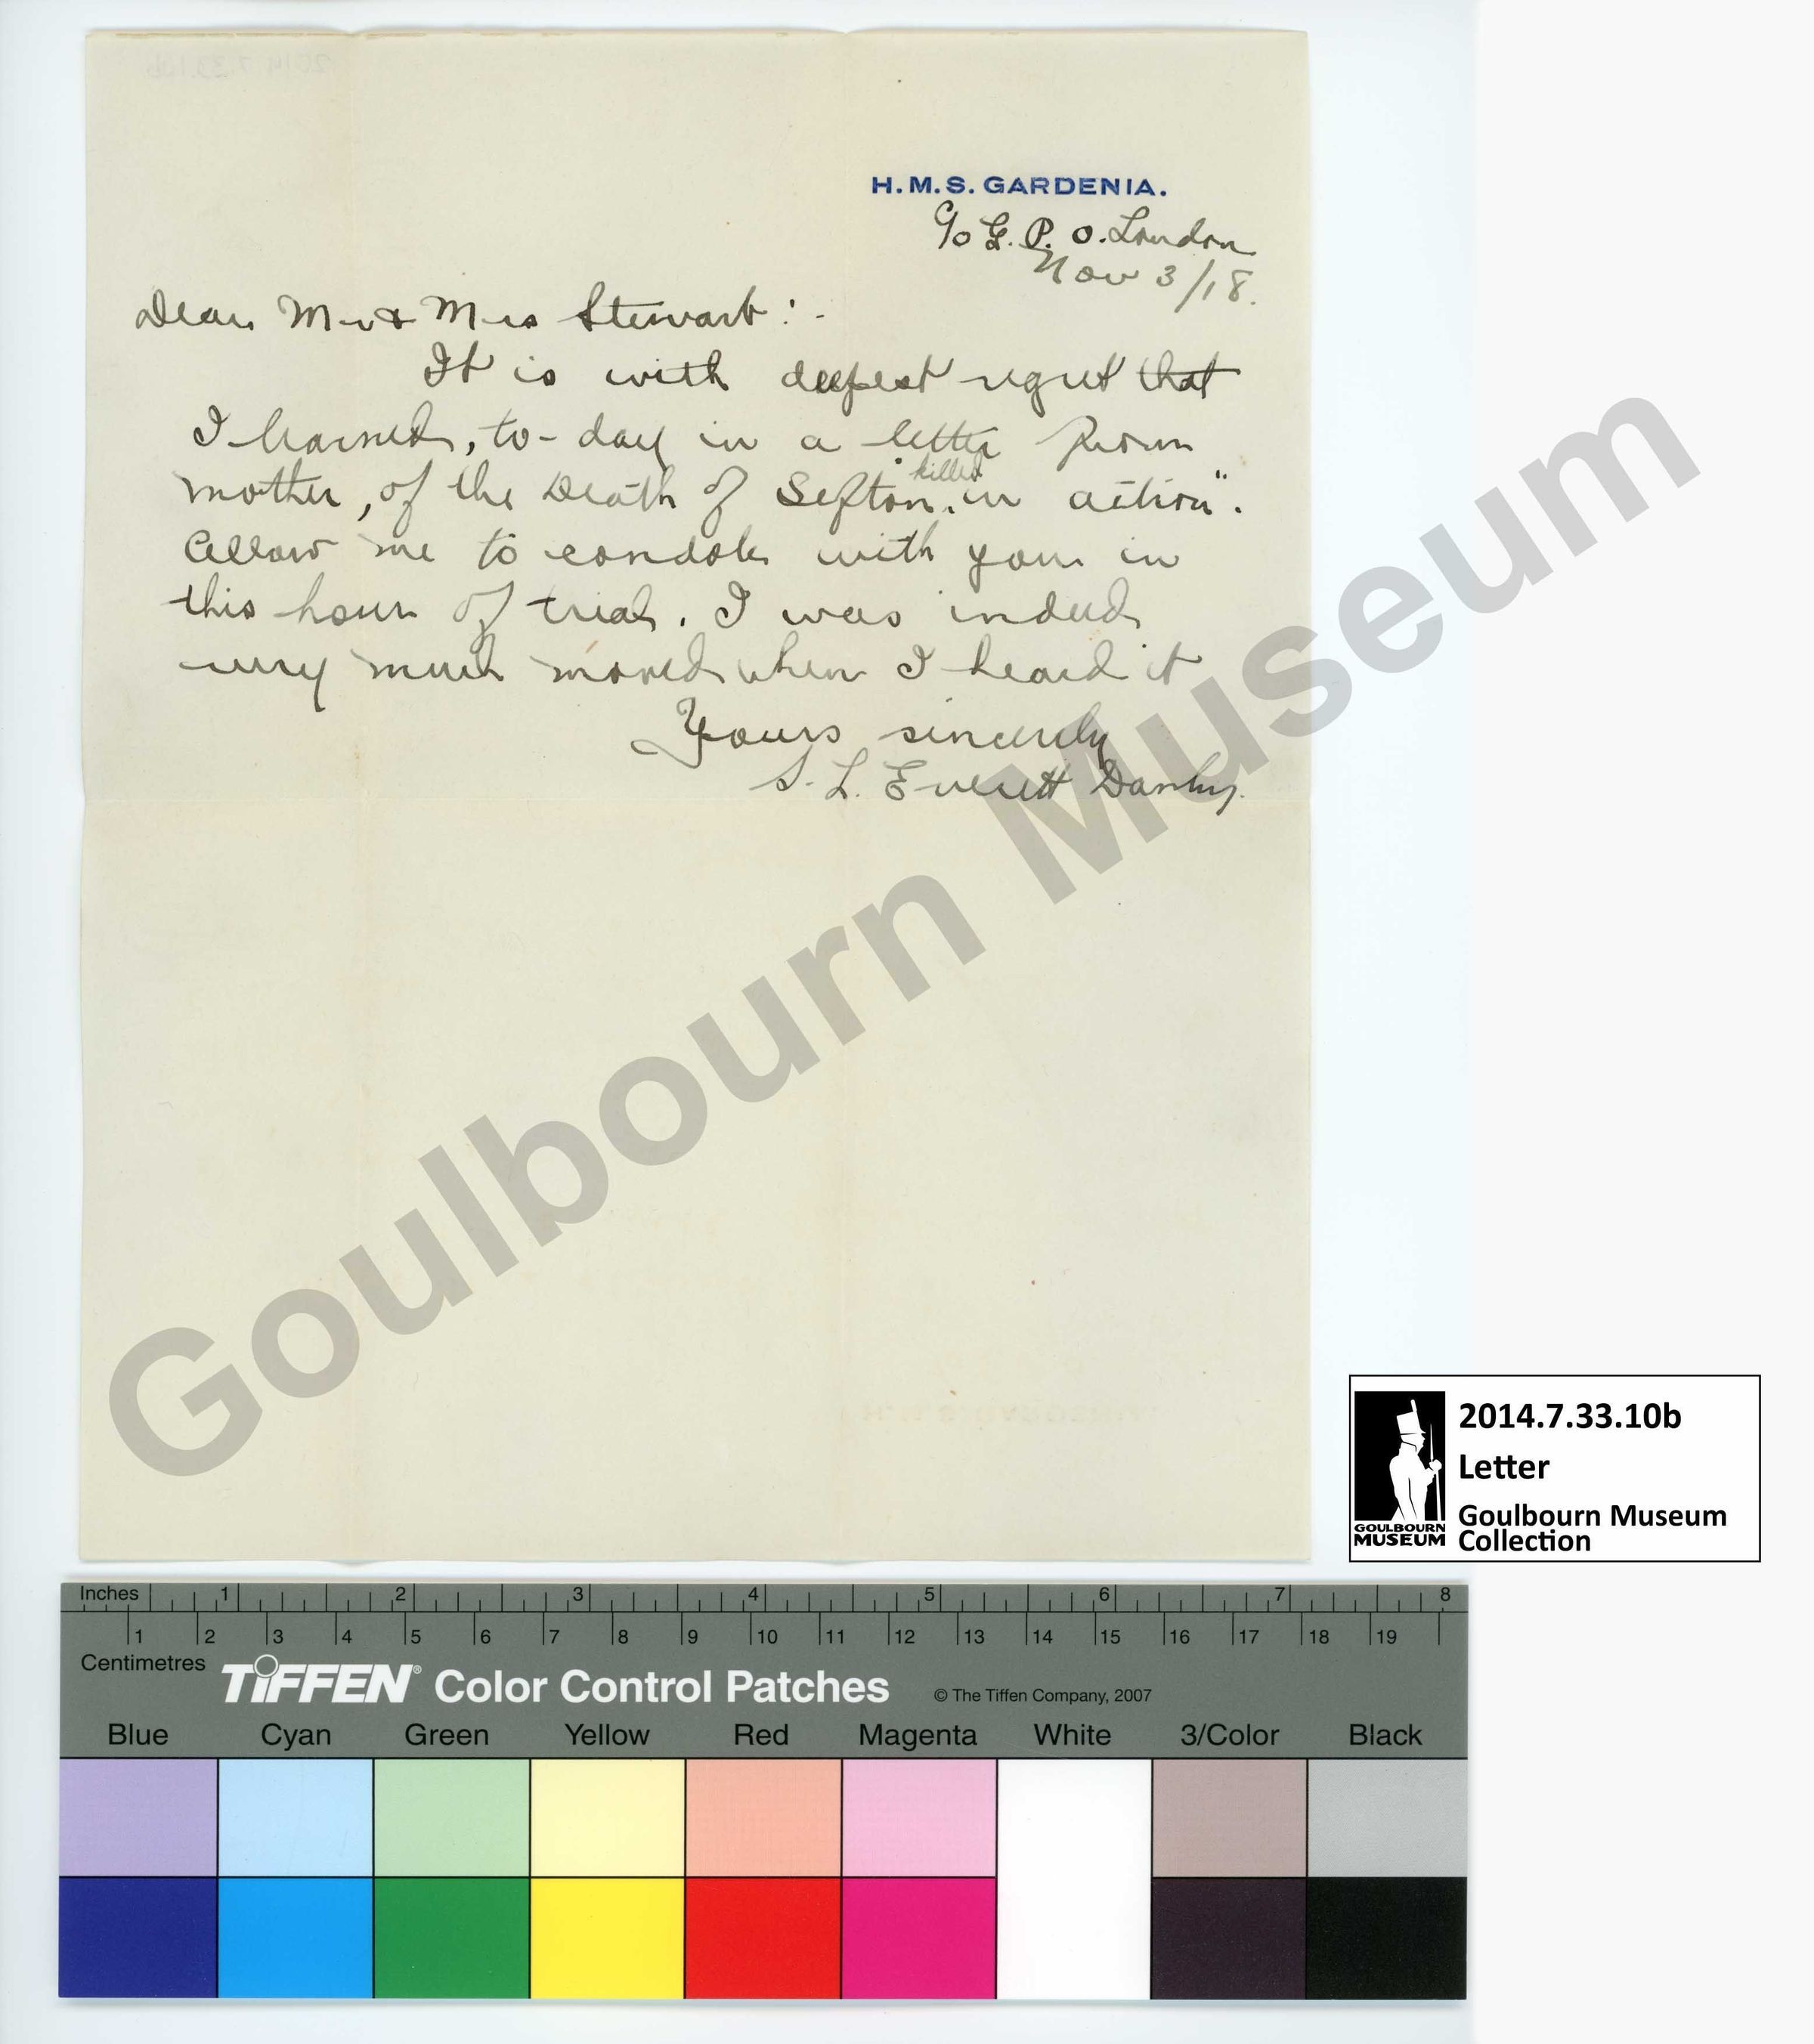 H.M.S. GARDENIA.
c/o G.P.O. London
Nov 3/18.
Dear Mr & Mrs Stewart:-
It is with deepest regret that
I learned, to-day in a letter from
mother, of the Death of Sefton, "killed in action".
Allow me to condole with you in
this hour of trial. I was indeed
very much moved when I heard it
Yours sincerely
S. L. Everett Danby.
Goulbourn Museum
2014.7.33.10b
Letter
Goulbourn Museum
Collection
GOULBOURN
MUSEUM
Inches 1 2 3 4 5 6 7 8
1 2 3 4 5 6 7 8 9 10 11 12 13 14 15 16 17 18 19
Centimetres
TIFFEN® Color Control Patches © The Tiffen Company, 2007
Blue Cyan Green Yellow Red Magenta White 3/Color Black